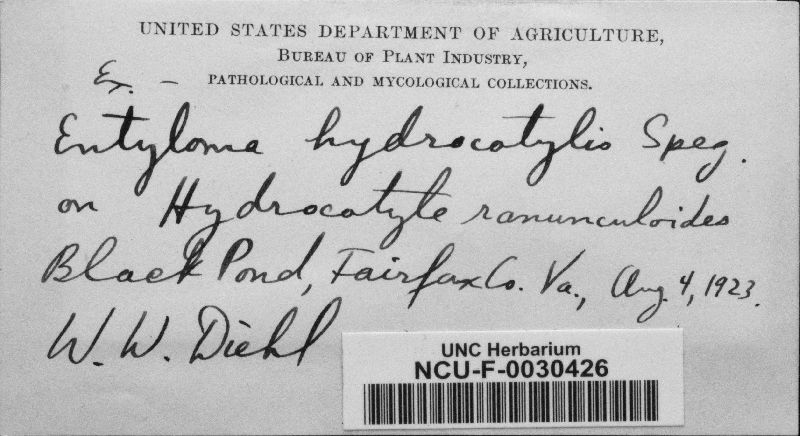 UNITED STATES DEPARTMENT OF AGRICULTURE,
BUREAU OF PLANT INDUSTRY,
Ex. –
PATHOLOGICAL AND MYCOLOGICAL COLLECTIONS.
Entyloma hydrocotylis Speg.
on Hydrocotyle ranunculoides
Black Pond, Fairfax Co. Va., Aug. 4, 1923.
W. W. Diehl
UNC Herbarium
NCU-F-0030426